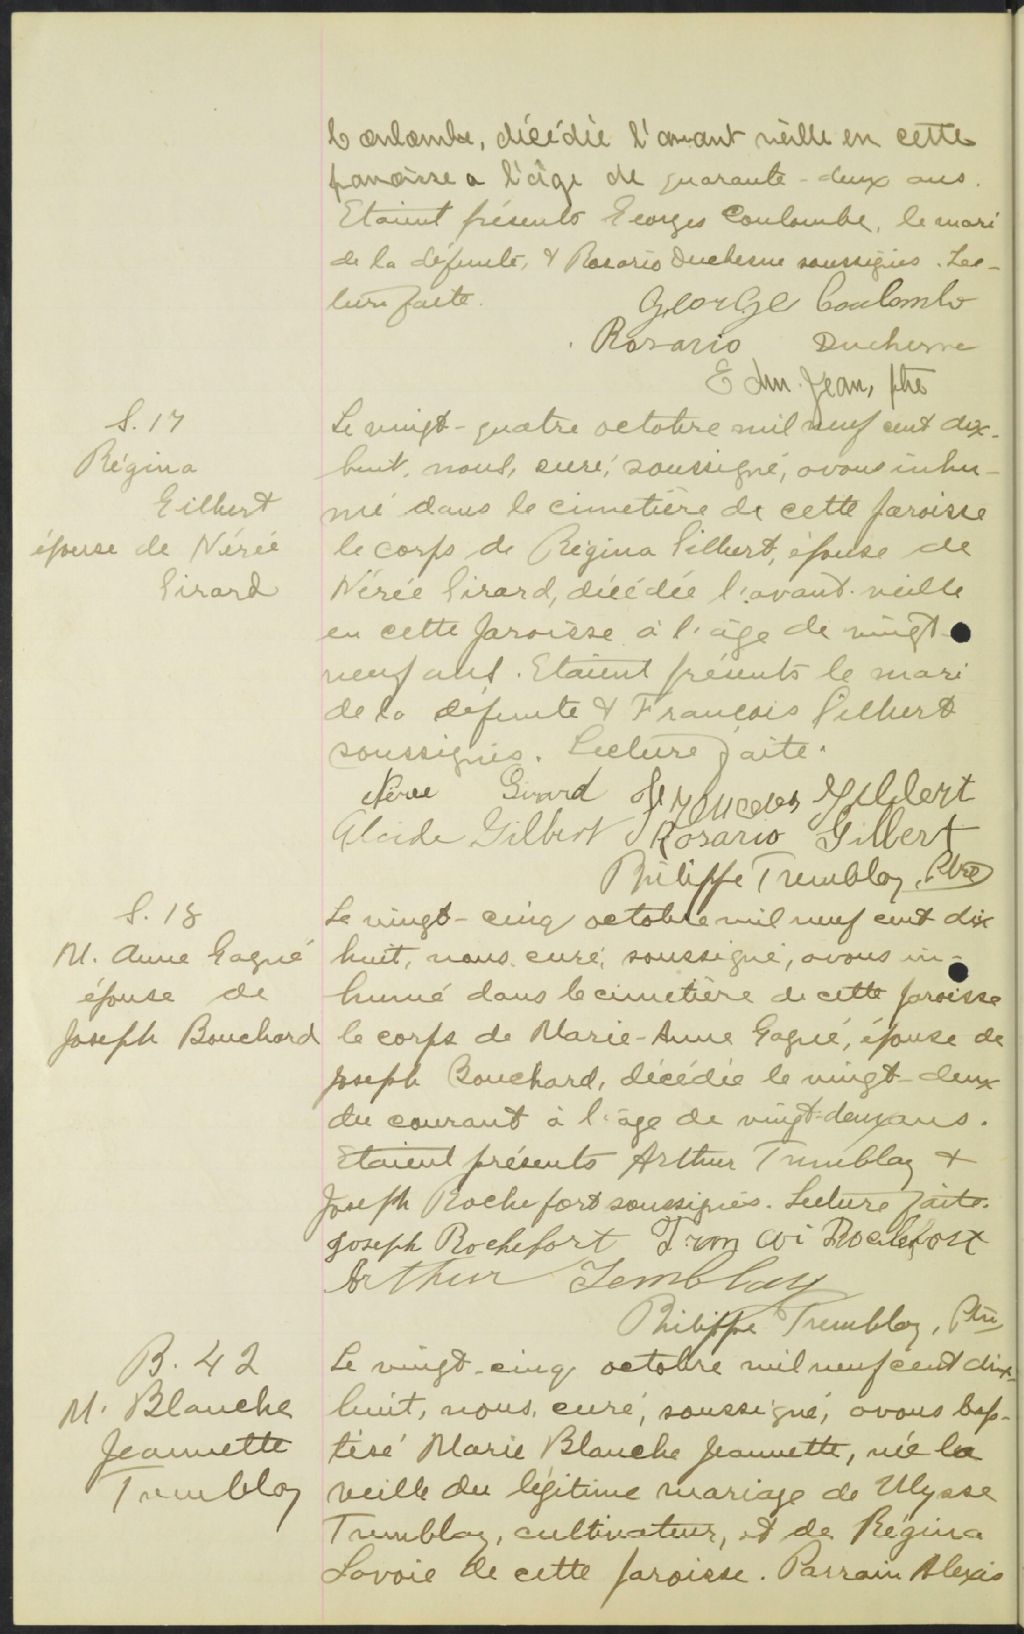 Coulombe, décédée l'avant veille en cette
paroisse a l'âge de quarante-deux ans.
Etaient présents Georges Coulombe, le mari
de la défunte, & Rosario Duchesne soussignés. Lec-
ture faite.
George Coulombe
Rosario Duchesne
Edm. Jean, ptre
S. 17
Régina
Gilbert
épouse de Nérée
Girard
Le vingt-quatre octobre mil neuf cent dix-
huit, nous, curé, soussigné, avons inhu-
mé dans le cimetière de cette paroisse
le corps de Régina Gilbert, épouse de
Nérée Girard, décédée l'avant-veille
en cette paroisse à l'âge de vingt-
neuf ans. Etaient présents le mari
de la défunte & François Gilbert
soussignés. Lecture faite.
Nérée Girard François Gilbert
Alcide Gilbert Rosario Gilbert
Philippe Tremblay, Ptre
S. 18
M. Anne Gagné
épouse de
Joseph Bouchard
Le vingt-cinq octobre mil neuf cent dix
huit, nous, curé, soussigné, avons in-
humé dans le cimetière de cette paroisse
le corps de Marie-Anne Gagné, épouse de
Joseph Bouchard, décédée le vingt-deux
du courant à l'âge de vingt-deux ans.
Etaient présents Arthur Tremblay &
Joseph Rochefort soussignés. Lecture faite.
Joseph Rochefort Rochefort
Arthur Temblay
Philippe Tremblay, Ptre
B. 42
M. Blanche
Jeannette
Tremblay
Le vingt-cinq octobre mil neuf cent dix-
huit, nous, curé, soussigné, avons bap-
tisé Marie Blanche Jeannette, née la
veille du légitime mariage de Ulysse
Tremblay, cultivateur, et de Régina
Lavoie de cette paroisse. Parrain Alexis